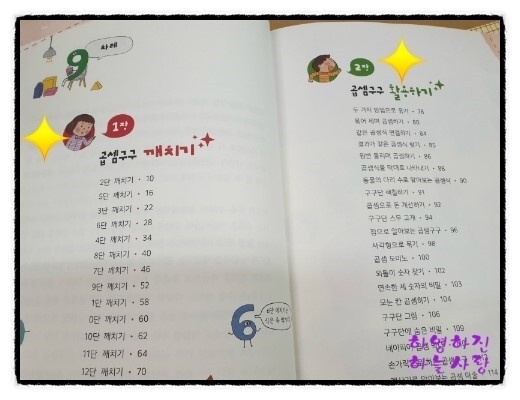 차례
1장
곱셈구구 깨치기
2단 깨치기 • 10
5단 깨치기 • 16
3단 깨치기 • 22
6단 깨치기 • 28
4단 깨치기 • 34
8단 깨치기 • 40
7단 깨치기 • 46
9단 깨치기 • 52
1단 깨치기 • 58
0단 깨치기 • 60
10단 깨치기 • 62
11단 깨치기 • 64
12단 깨치기 • 70
2장
곱셈구구 활용하기
두 가지 방법으로 묶기 • 78
묶어 세며 곱셈하기 •
같은 곱셈식 연결하기 • 84
결과가 같은 곱셈식 찾기 • 85
원반 돌리며 곱셈하기 • 86
곱셈식을 막대로 나타내기 • 88
동물의 다리 수로 알아보는 곱셈식 • 90
구구단 색칠하기 • 91
곱셈으로 돈 계산하기 • 92
구구단 스무 고개 • 94
집으로 알아보는 곱셈구구 • 96
사각형으로 묶기 • 98
곱셈 도미노 • 100
외톨이 숫자 찾기 • 102
연속한 세 숫자의 비밀 • 103
모눈 칸 곱셈하기 • 104
구구단 그림 • 106
구구단에 숨은 비밀 • 109
네이피어 곱셈
손가락
114
하영하진
하늘사랑